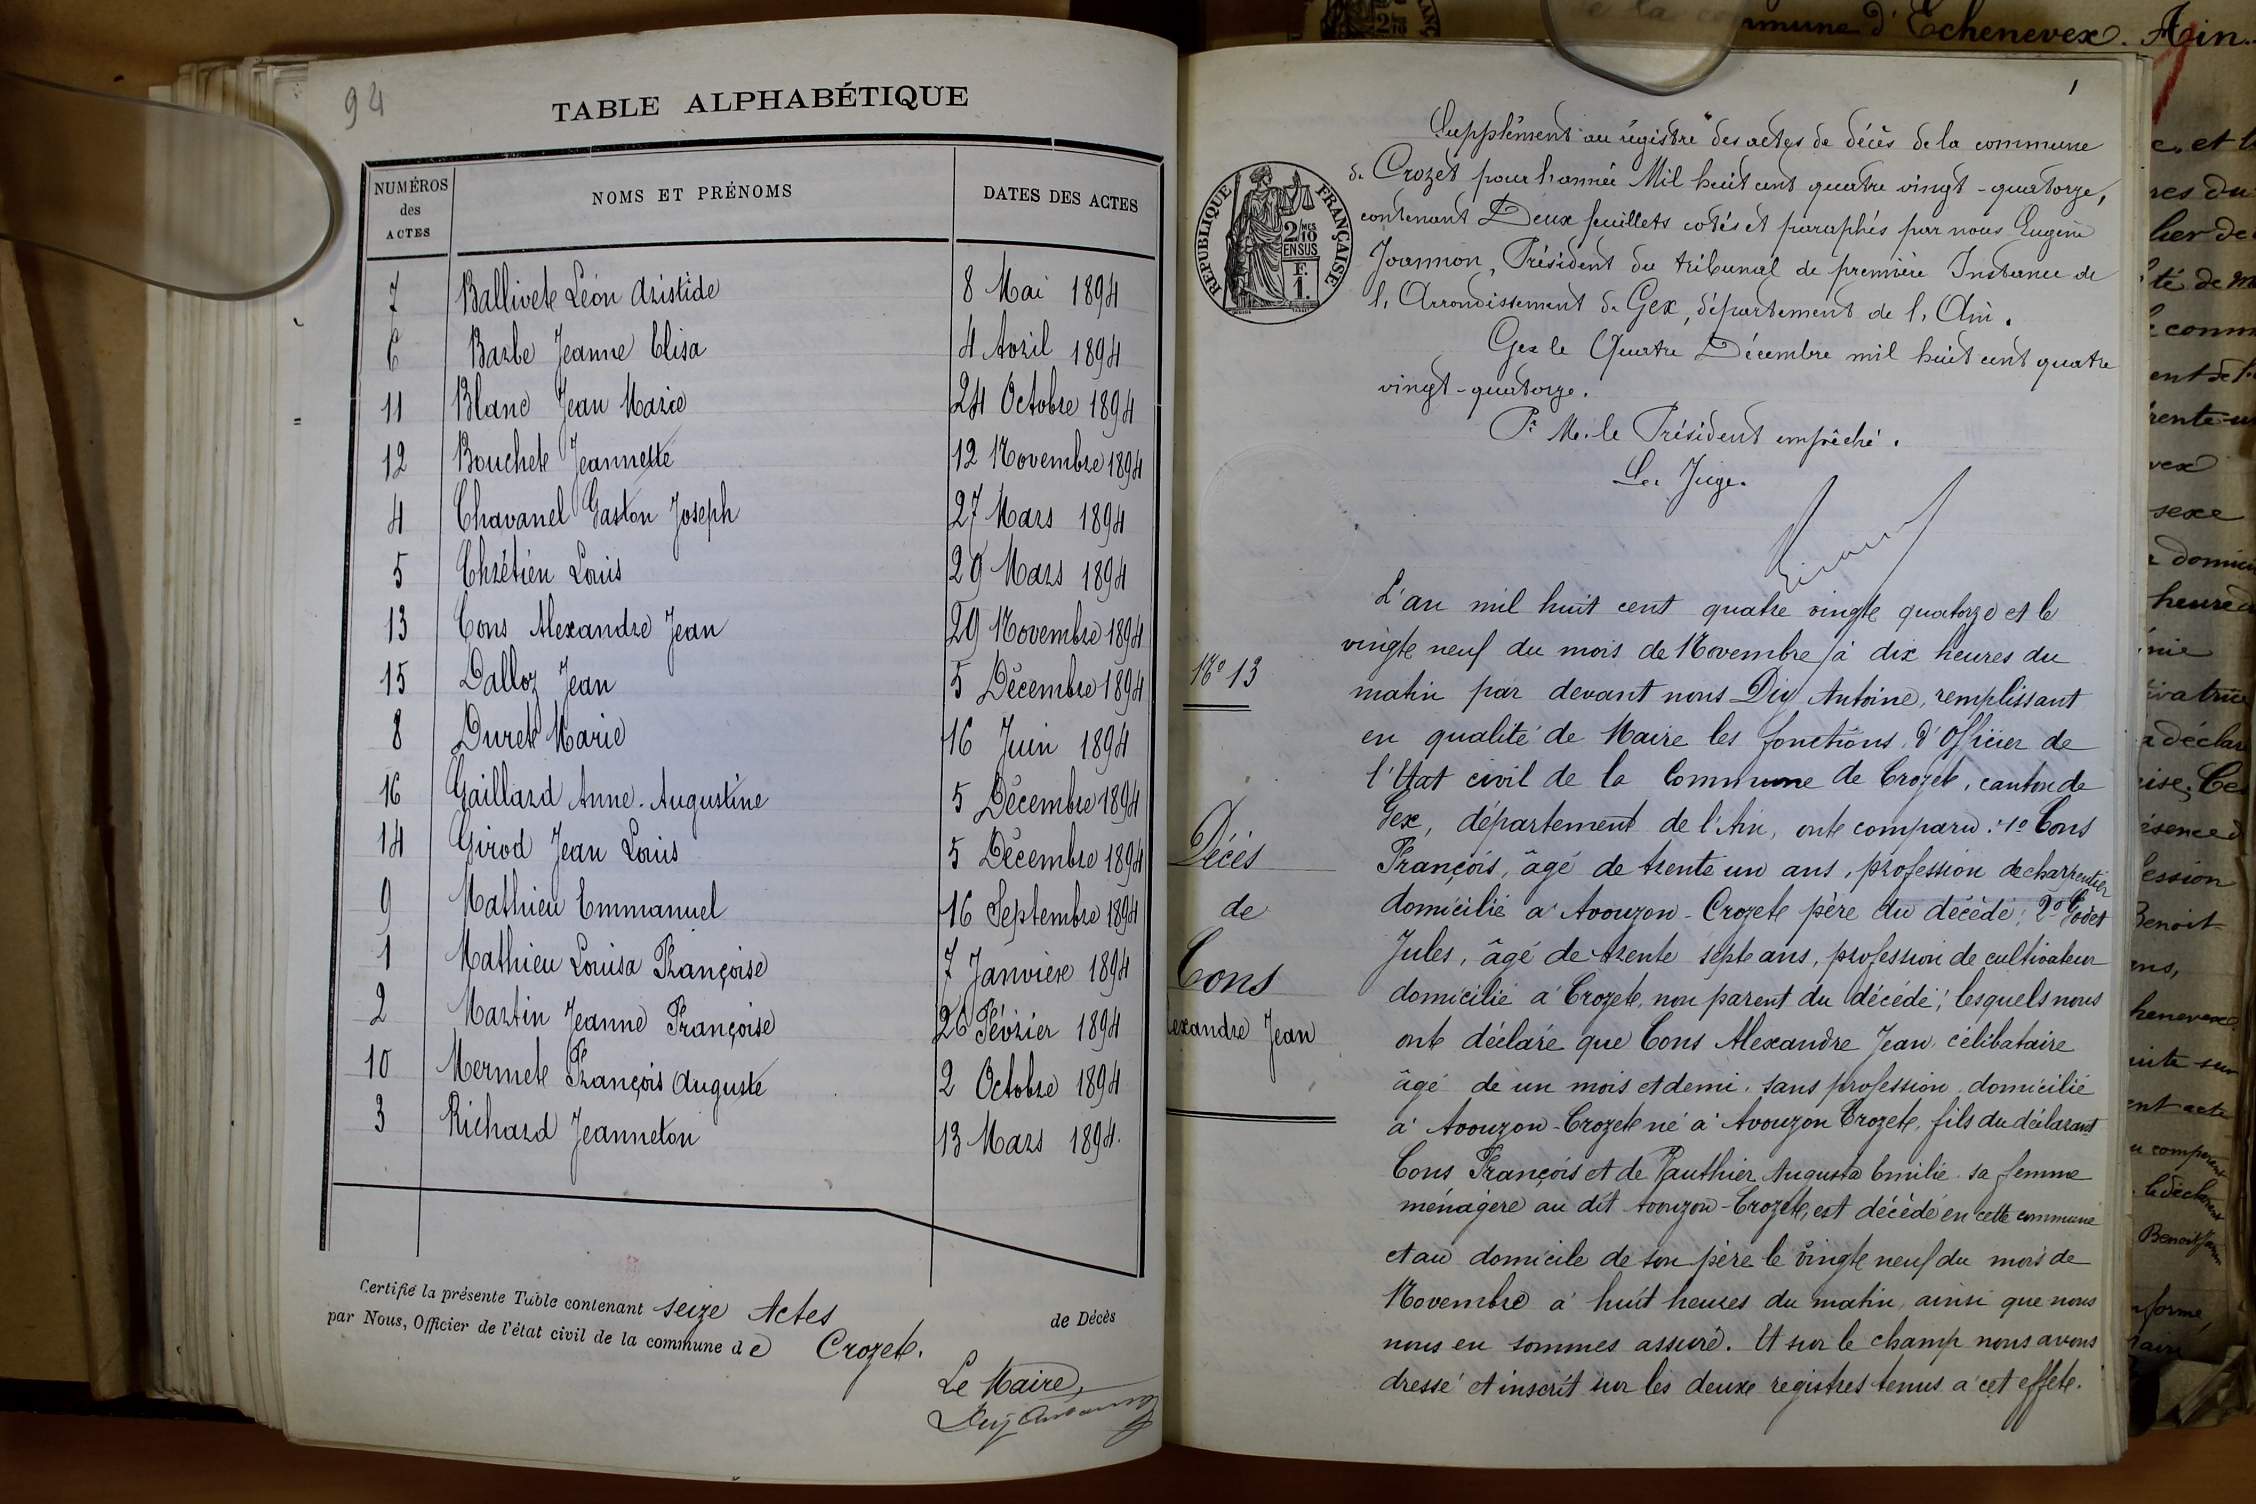 94
TABLE ALPHABÉTIQUE
NUMÉROS des ACTES
NOMS ET PRÉNOMS
DATES DES ACTES
7 Ballivete Léon Aristide 8 Mai 1894
6 Barbe Jeanne Elisa 4 Avril 1894
11 Blanc Jean Marie 24 Octobre 1894
12 Bouchete Jeannette 12 Novembre 1894
4 Chavanel Gaston Joseph 27 Mars 1894
5 Chrétien Louis 29 Mars 1894
13 Cons Alexandre Jean 29 Novembre 1894
15 Dalloz Jean 5 Décembre 1894
8 Durete Marie 16 Juin 1894
16 Gaillard Anne-Augustine 5 Décembre 1894
14 Girod Jean Louis 5 Décembre 1894
9 Mathieu Emmanuel 16 Septembre 1894
1 Mathieu Louisa Françoise 7 Janvier 1894
2 Martin Jeanne Françoise 26 Février 1894
10 Mermete François Auguste 2 Octobre 1894
3 Richard Jeanneton 13 Mars 1894.
Certifié la présente Table contenant seize Actes de Décès
par Nous, Officier de l'état civil de la commune de Crozete.
Le Maire,
mmune d'Echenevex. Ain.
1
Supplément au registre des actes de décès de la commune
de Crozet pour l'année Mil huit cent quatre vingt-quatorze,
contenant Deux feuillets cotés et paraphés par nous Eugène
Joannon, Président du tribunal de première Instance de
l'Arrondissement de Gex, département de l'Ain.
Gex le Quatre Décembre mil huit cent quatre
vingt-quatorze.
Pr M. le Président empêché.
Le Juge.
RÉPUBLIQUE FRANÇAISE
2/10 MES
EN SUS
F.
1.
N° 13
Décès
de
Cons
lexandre Jean
L'an mil huit cent quatre vingte quatorze et le
vingte neuf du mois de Novembre, à dix heures du
matin par devant nous Diy Antoine, remplissant
en qualité de Maire les fonctions d'Officier de
l'Etat civil de la Commune de Crozete, canton de
Gex, département de l'Ain, onte comparu: 1° Cons
François, âgé de trente un ans, profession de charpentier
domicilié à Avouzon-Crozete père du décédé; 2° Godet
Jules, âgé de trente septe ans, profession de cultivateur
domicilié à Crozete, non parent du décédé; lesquels nous
onte déclaré que Cons Alexandre Jean, célibataire
âgé de un mois et demi, sans profession, domicilié
à Avouzon-Crozete né à Avouzon Crozete, fils du déclarant
Cons François et de Pauthier Augusta Emilie sa femme
ménagère au dit Avouzon-Crozete, est décédé en cette commune
et au domicile de son père le vingte neuf du mois de
Novembre à huit heures du matin, ainsi que nous
nous en sommes assuré. Et sur le champ nous avons
dressé et inscrit sur les deuxe registres tenus à cet effete.